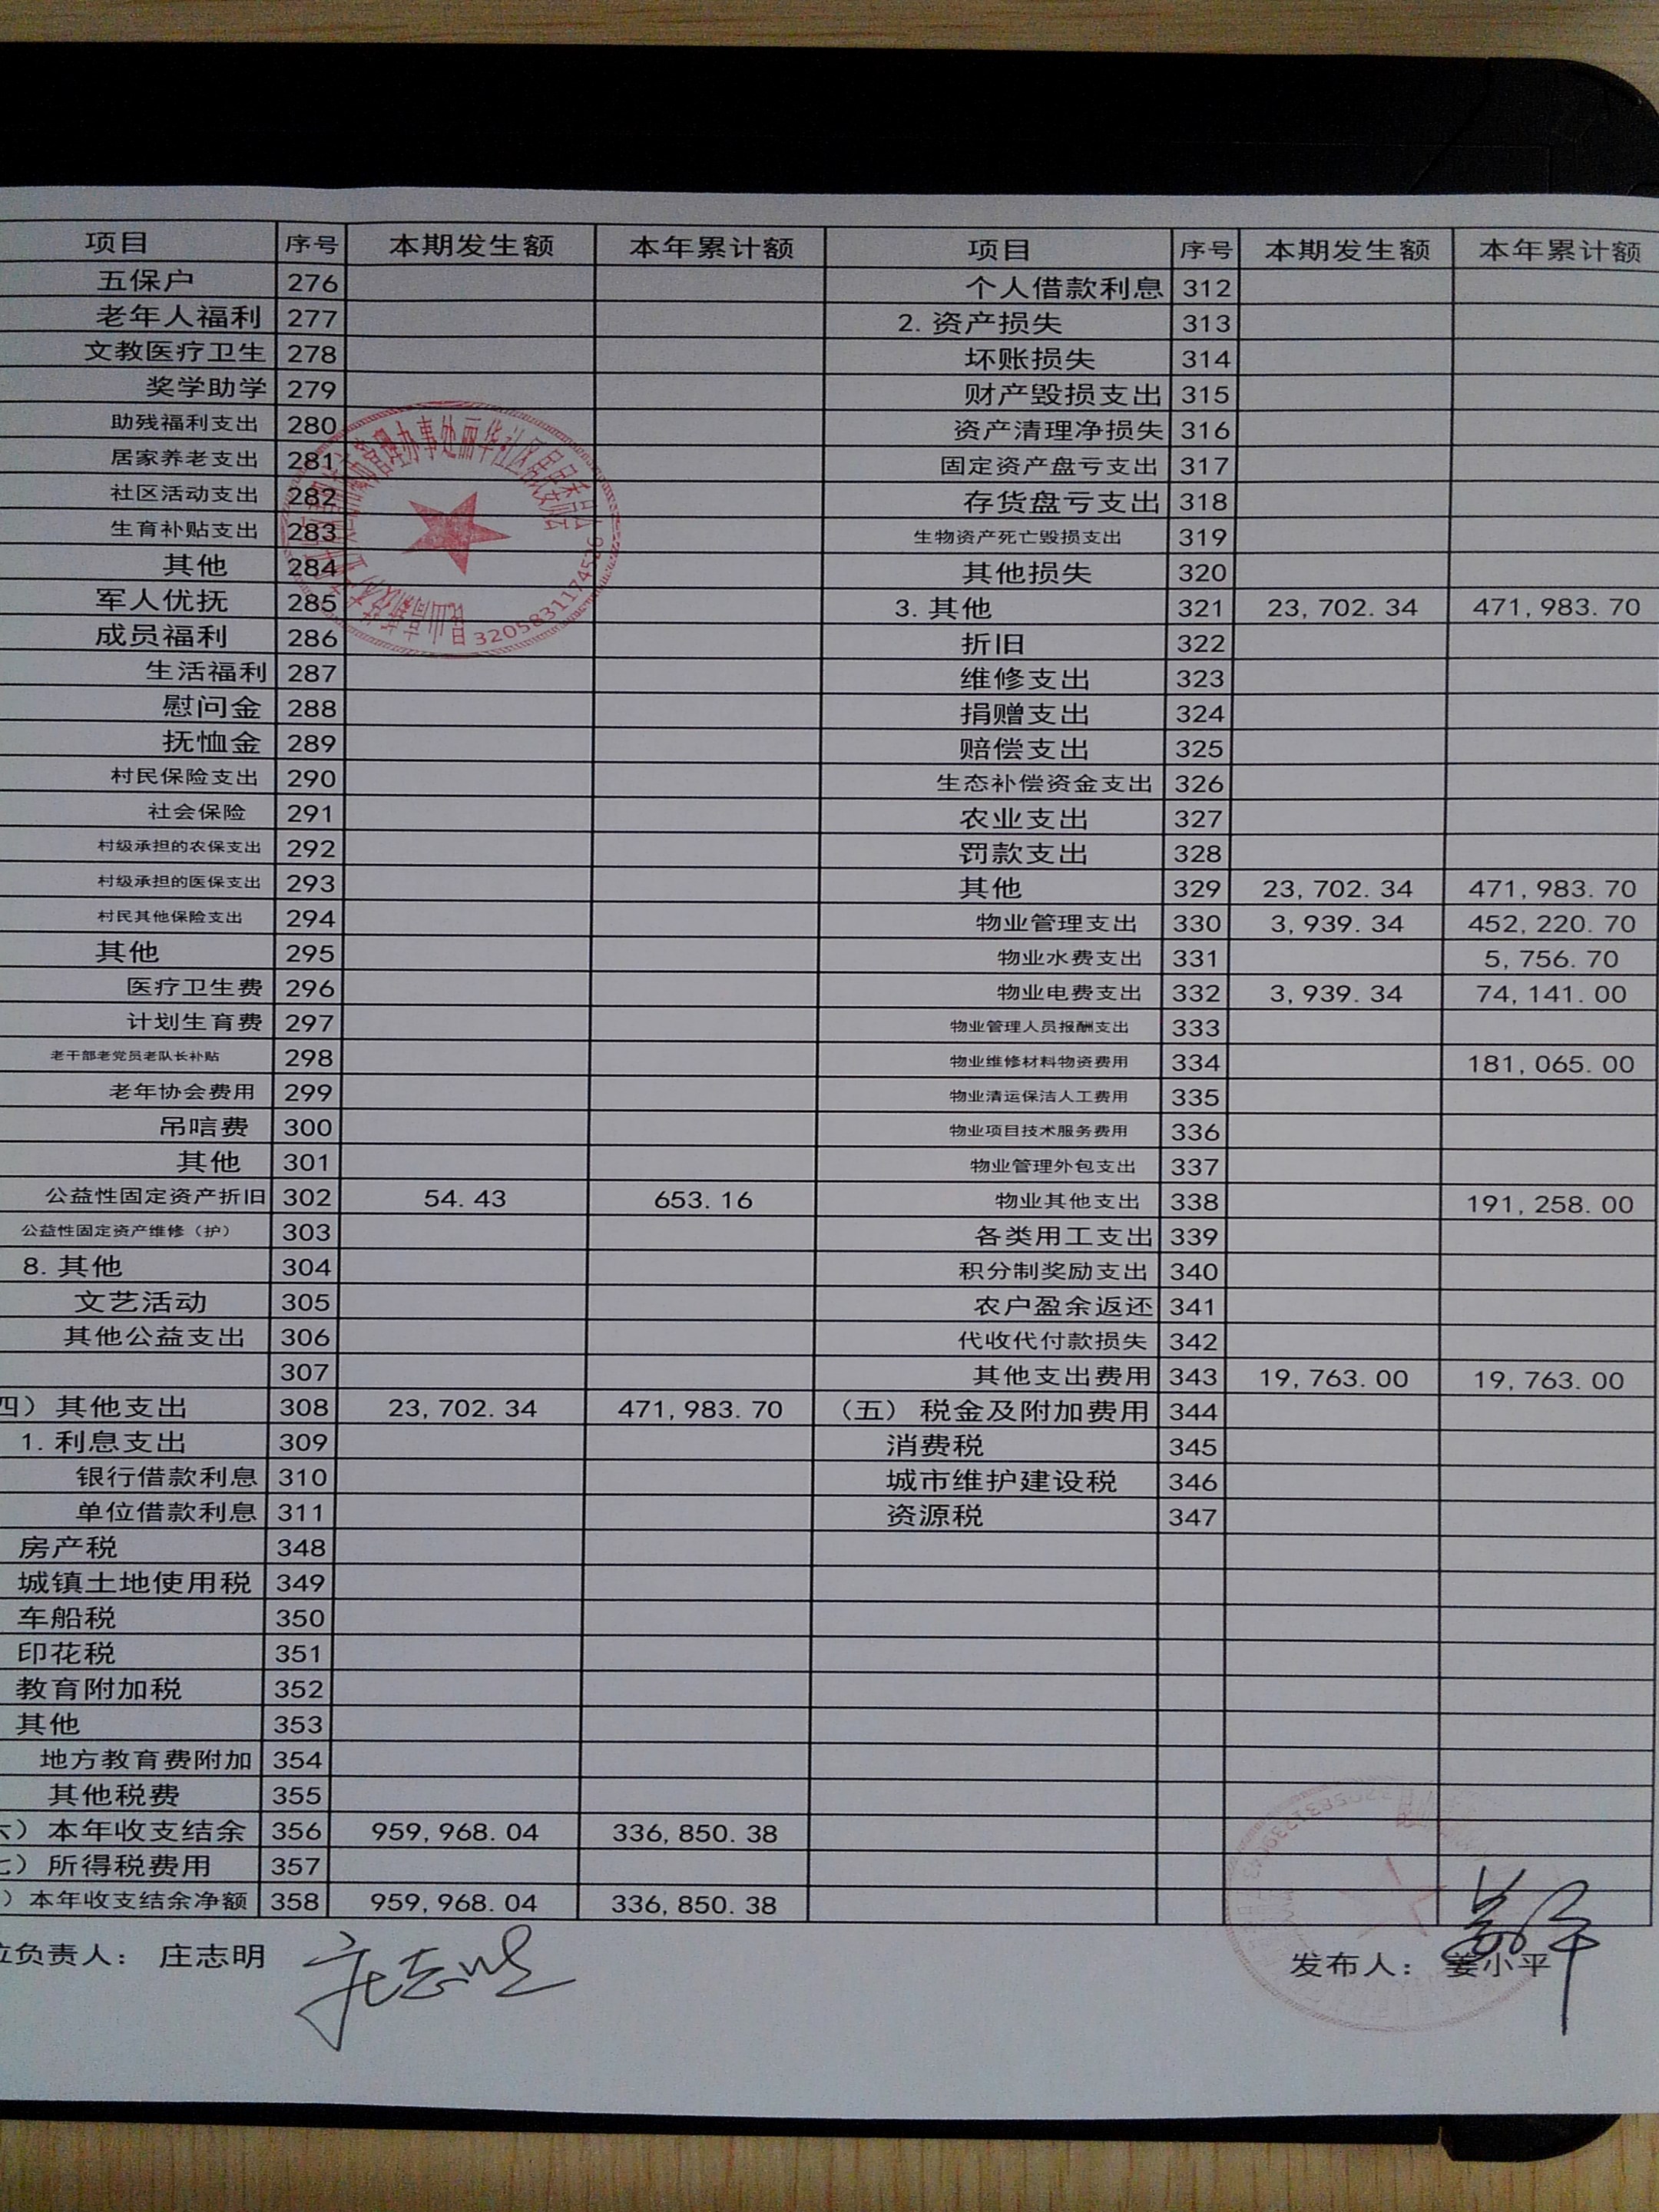 项目 序号 本期发生额 本年累计额 项目 序号 本期发生额 本年累计额
五保户 276 个人借款利息 312
老年人福利 277 2. 资产损失 313
文教医疗卫生 278 坏账损失 314
奖学助学 279 财产毁损支出 315
助残福利支出 280 资产清理净损失 316
居家养老支出 281 固定资产盘亏支出 317
社区活动支出 282 存货盘亏支出 318
生育补贴支出 283 生物资产死亡毁损支出 319
其他 284 其他损失 320
军人优抚 285 3. 其他 321 23,702.34 471,983.70
成员福利 286 折旧 322
生活福利 287 维修支出 323
慰问金 288 捐赠支出 324
抚恤金 289 赔偿支出 325
村民保险支出 290 生态补偿资金支出 326
社会保险 291 农业支出 327
村级承担的农保支出 292 罚款支出 328
村级承担的医保支出 293 其他 329 23,702.34 471,983.70
村民其他保险支出 294 物业管理支出 330 3,939.34 452,220.70
其他 295 物业水费支出 331 5,756.70
医疗卫生费 296 物业电费支出 332 3,939.34 74,141.00
计划生育费 297 物业管理人员报酬支出 333
老干部老党员老队长补贴 298 物业维修材料物资费用 334 181,065.00
老年协会费用 299 物业清运保洁人工费用 335
吊唁费 300 物业项目技术服务费用 336
其他 301 物业管理外包支出 337
公益性固定资产折旧 302 54.43 653.16 物业其他支出 338 191,258.00
公益性固定资产维修（护） 303 各类用工支出 339
8. 其他 304 积分制奖励支出 340
文艺活动 305 农户盈余返还 341
其他公益支出 306 代收代付款损失 342
307 其他支出费用 343 19,763.00 19,763.00
四）其他支出 308 23,702.34 471,983.70 （五）税金及附加费用 344
1. 利息支出 309 消费税 345
银行借款利息 310 城市维护建设税 346
单位借款利息 311 资源税 347
房产税 348
城镇土地使用税 349
车船税 350
印花税 351
教育附加税 352
其他 353
地方教育费附加 354
其他税费 355
）本年收支结余 356 959,968.04 336,850.38
）所得税费用 357
）本年收支结余净额 358 959,968.04 336,850.38
负责人： 庄志明 庄志明 发布人： 姜小平